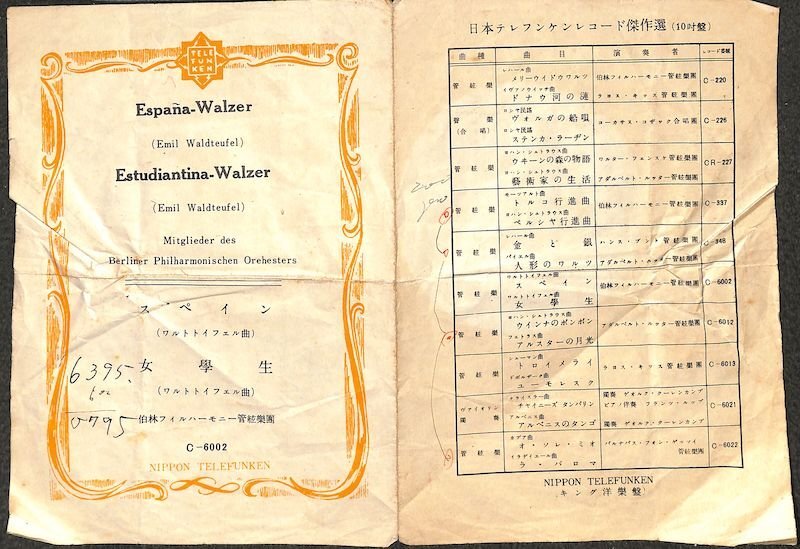 TELE
FUN
KEN
España-Walzer
(Emil Waldteufel)
Estudiantina-Walzer
(Emil Waldteufel)
Mitglieder des
Berliner Philharmonischen Orehesters
スペイン
(ワルトトイフェル曲)
女學生
(ワルトトイフェル曲)
6395.
0795
伯林フィルハーモニー管絃樂團
C-6002
NIPPON TELEFUNKEN
日本テレフンケンレコード傑作選 (10吋盤)
曲種 曲目 演奏者 レコード番號
管絃樂 レハール曲 メリーウイドウワルツ 伯林フィルハーモニー管絃樂團 C-220
イヴァノウイッチ曲 ドナウ河の漣 ラヨス・キッス管絃樂團
管樂 (合唱) ロシヤ民謡 ヴォルガの船唄 コーカサス・コザック合唱團 C-226
ロシヤ民謡 ステンカ・ラーヂン
管絃樂 ヨハン・シュトラウス曲 ウキーンの森の物語 ワルター・フェンスケ管絃樂團 CR-227
ヨハン・シュトラウス曲 藝術家の生活 アダルベルト・ルッター管絃樂團
管絃樂 モーツアルト曲 トルコ行進曲 伯林フィルハーモニー管絃樂團 C-337
ヨハン・シュトラウス曲 ペルシヤ行進曲
管絃樂 レハール曲 金と銀 ハンス・ブント管絃樂團 C-348
バイエル曲 人形のワルツ アダルベルト・ルッター管絃樂團
管絃樂 ワルトトイフェル曲 スペイン 伯林フィルハーモニー管絃樂團 C-6002
ワルトトイフェル曲 女學生
管絃樂 ヨハン・シュトラウス曲 ウインナのボンボン アダルベルト・ルッター管絃樂團 C-6012
フェトラス曲 アルスターの月光
管絃樂 シューマン曲 トロイメライ ラヨス・キッス管絃樂團 C-6013
ドボルザーク曲 ユーモレスク
ヴァイオリン獨奏 クライスラー曲 チャイニーズ タンバリン 獨奏 ゲオルク・クーレンカンプ ピアノ伴奏 フランツ・ルップ C-6021
アルベニス曲 アルベニスのタンゴ 獨奏 ゲオルク・クーレンカンプ
管絃樂 カプア曲 オ・ソレ・ミオ バルナバス・フォン・ゲッツイ管絃樂團 C-6022
イラディエール曲 ラ・パロマ
NIPPON TELEFUNKEN
(キング洋樂盤)